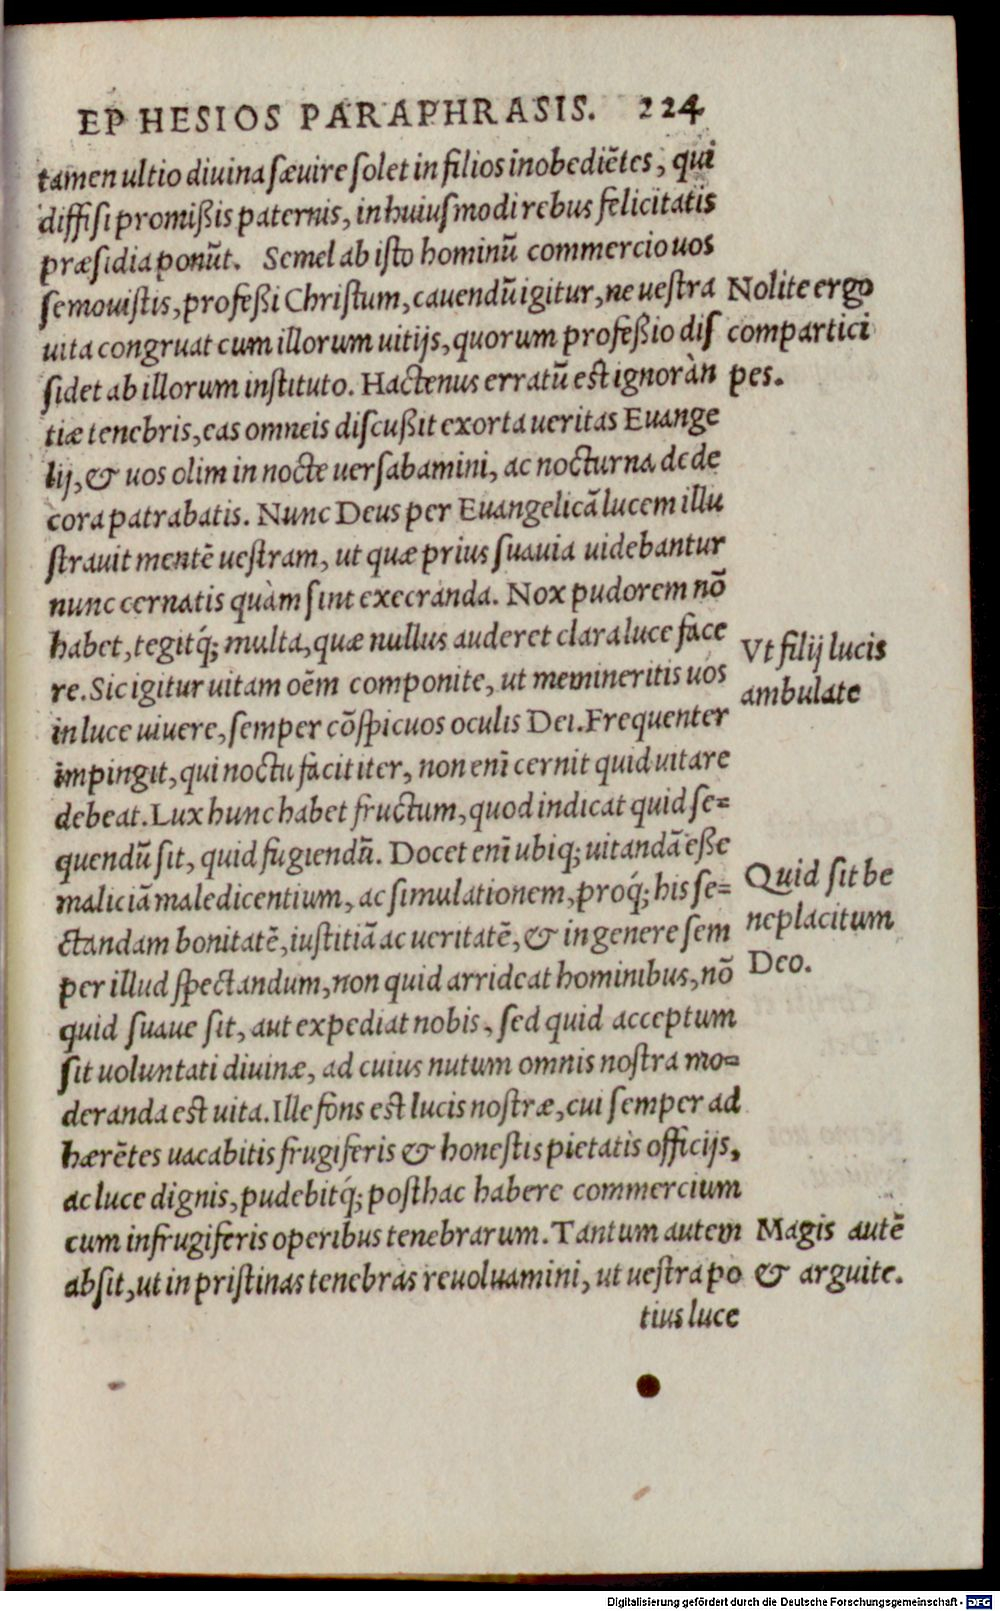 EPHESIOS PARAPHRASIS. 224
tamen ultio diuina sæuire solet in filios inobediẽtes, qui
diffisi promißis paternis, in huiusmodi rebus felicitatis
præsidia ponũt. Semel ab isto hominũ commercio uos
semouistis, profeßi Christum, cauendũ igitur, ne uestra
uita congruat cum illorum uitijs, quorum profeßio dis
sidet ab illorum instituto. Hactenus erratũ est ignoràn
tiæ tenebris, eas omneis discußit exorta ueritas Euange
lij, & uos olim in nocte uersabamini, ac nocturna dede
cora patrabatis. Nunc Deus per Euangelicã lucem illu
strauit mentẽ uestram, ut quæ prius suauia uidebantur
nunc cernatis quàm sint execranda. Nox pudorem nõ
habet, tegitq́; multa, quæ nullus auderet clara luce face
re. Sic igitur uitam oẽm componite, ut memineritis uos
in luce uiuere, semper cõspicuos oculis Dei. Frequenter
impingit, qui noctu facit iter, non enĩ cernit quid uitare
debeat. Lux hunc habet fructum, quod indicat quid se=
quendũ sit, quid fugiendũ. Docet enĩ ubiq; uitandã eße
maliciã maledicentium, ac simulationem, proq́; his se=
ctandam bonitatẽ, iustitiã ac ueritatẽ, & in genere sem
per illud spectandum, non quid arrideat hominibus, nõ
quid suaue sit, aut expediat nobis, sed quid acceptum
sit uoluntati diuinæ, ad cuius nutum omnis nostra mo=
deranda est uita. Ille fons est lucis nostræ, cui semper ad
hærẽtes uacabitis frugiferis & honestis pietatis officijs,
ac luce dignis, pudebitq́; posthac habere commercium
cum infrugiferis operibus tenebrarum. Tantum autem
absit, ut in pristinas tenebras reuoluamini, ut uestra po
tius luce
Nolite ergo
compartici
pes.
Vt filij lucis
ambulate
Quid sit be
neplacitum
Deo.
Magis autẽ
& arguite.
Digitalisierung gefördert durch die Deutsche Forschungsgemeinschaft - DFG